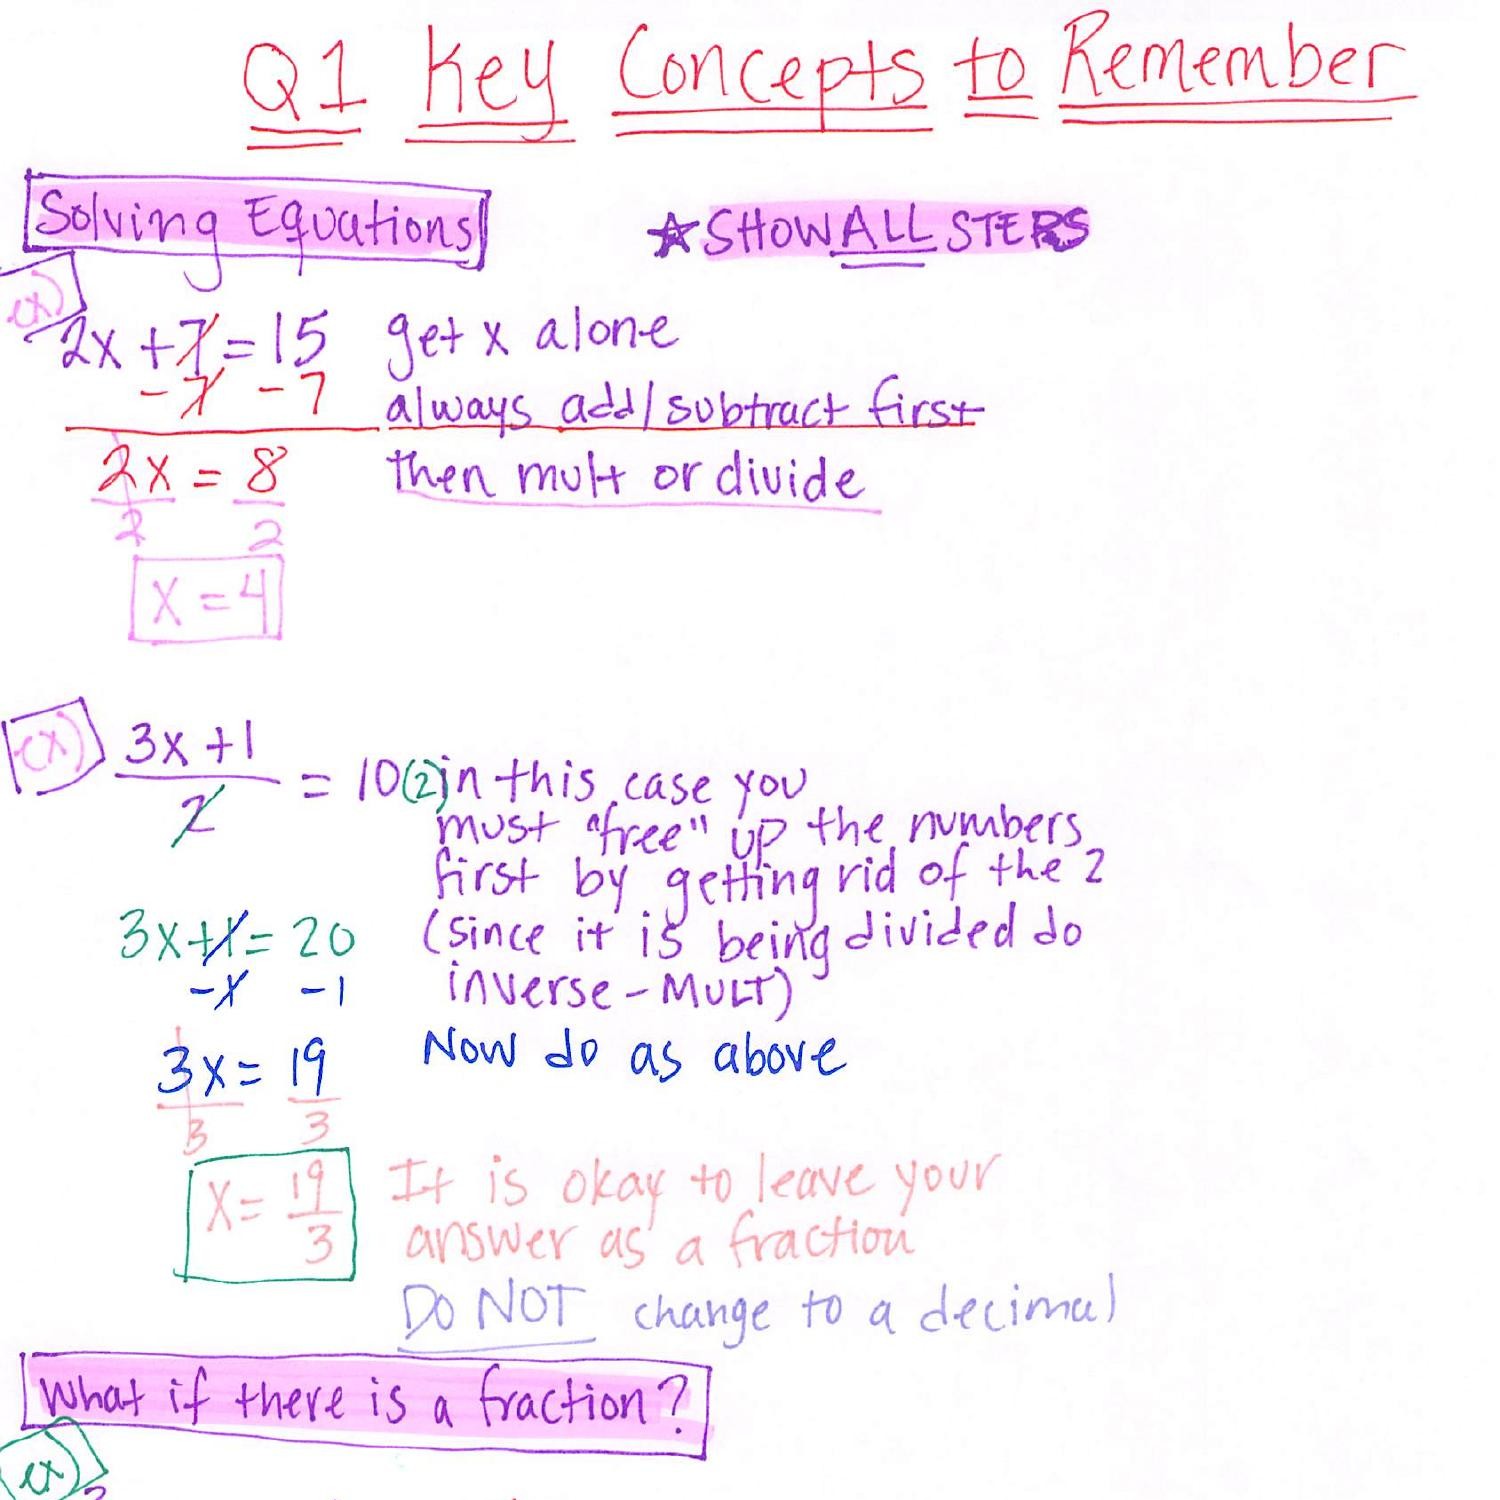 Q1 Key Concepts to Remember
Solving Equations
☆ SHOW ALL STEPS
ex)
2x + 7 = 15 get x alone
- 7 - 7 always add/subtract first
2x = 8 then mult or divide
2 2
x = 4
ex) 3x + 1
2 = 10(2) in this case you
must "free" up the numbers
first by getting rid of the 2
3x + 1 = 20 (since it is being divided do
- 1 - 1 inverse - MULT)
3x = 19 Now do as above
3 3
x = 19 It is okay to leave your
3 answer as a fraction
DO NOT change to a decimal
What if there is a fraction?
ex)